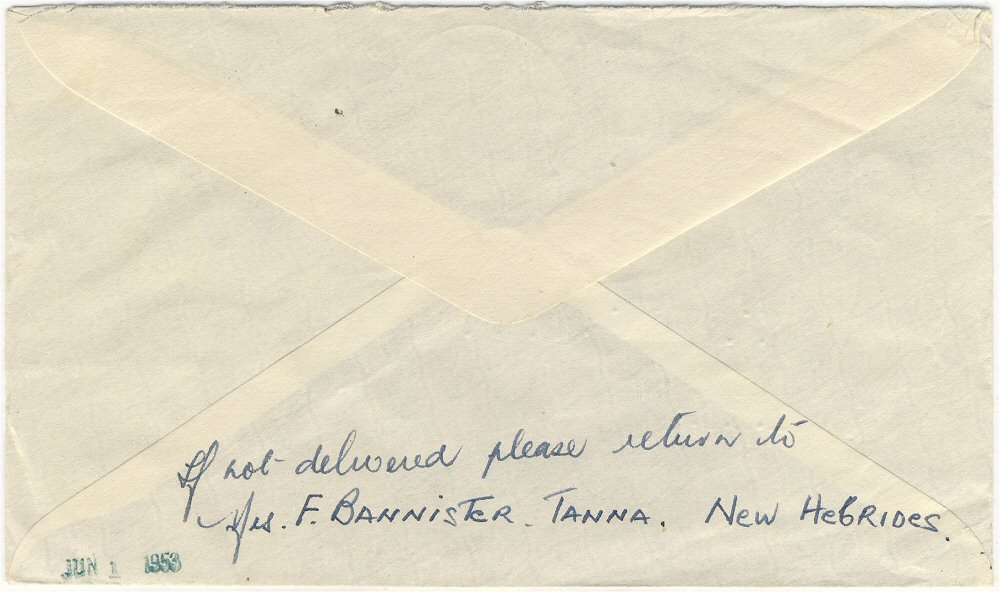 If not delivered please return to
Mrs. F. BANNISTER. TANNA. NEW HEBRIDES.
JUN 1 1953